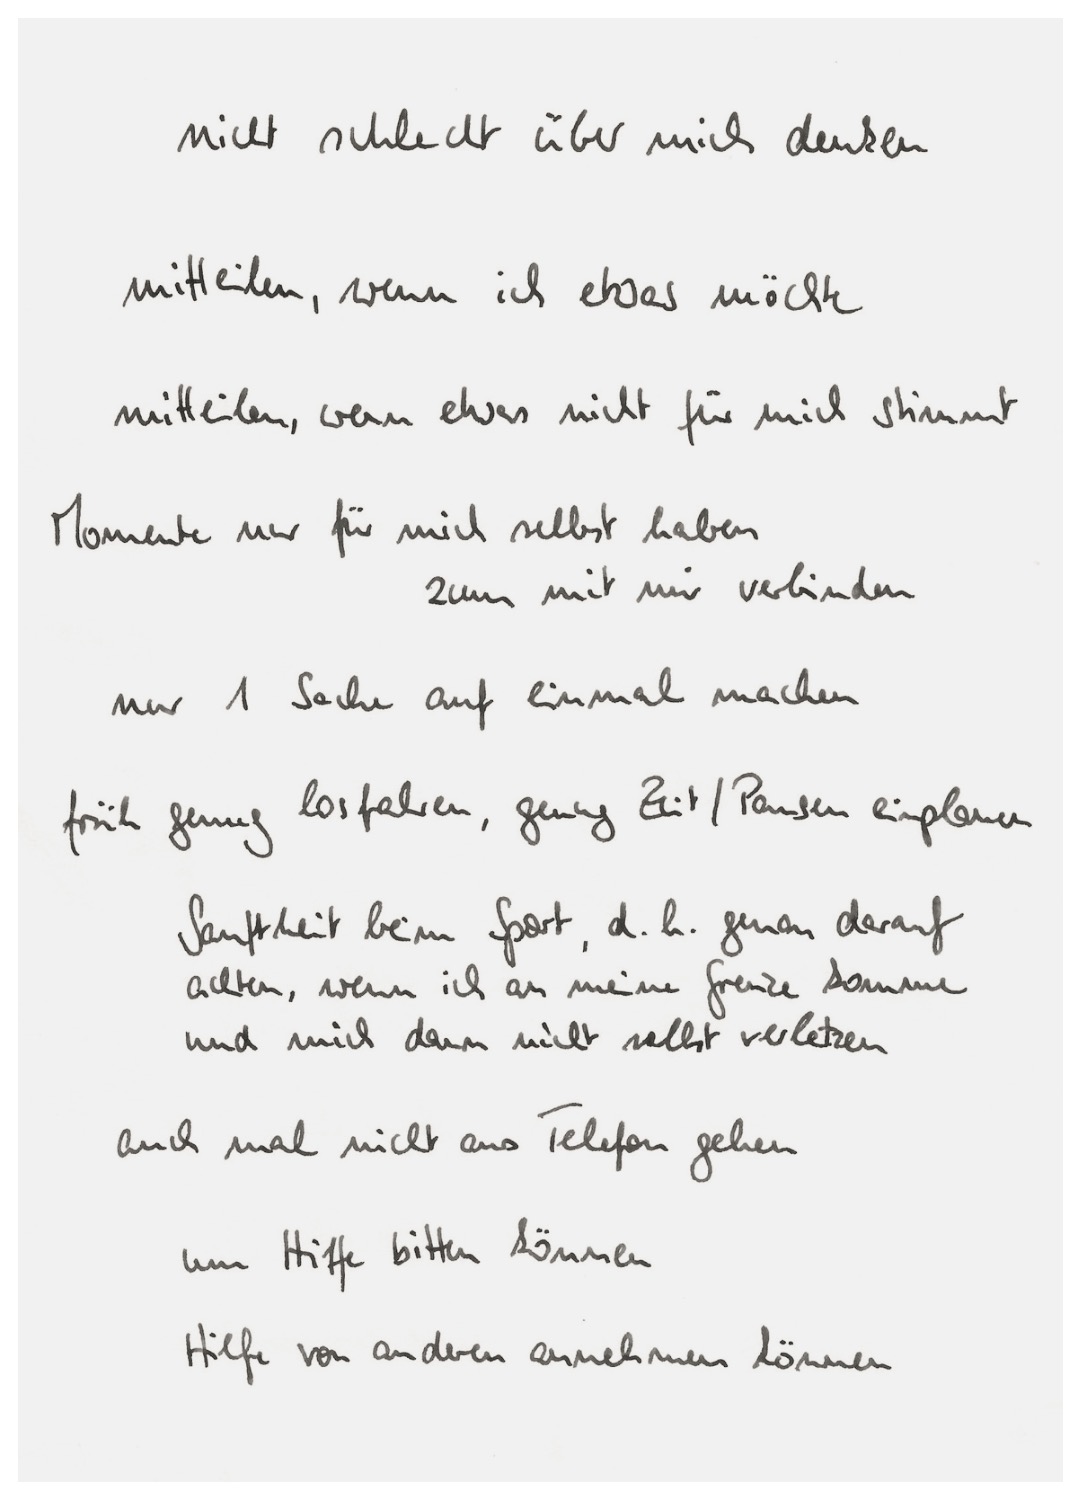 nicht schlecht über mich denken
mitteilen, wenn ich etwas möchte
mitteilen, wenn etwas nicht für mich stimmt
Momente nur für mich selbst haben
zum mit mir verbinden
nur 1 Sache auf einmal machen
früh genug losfahren, genug Zeit/Pausen einplanen
Sanftheit beim Sport, d.h. genau darauf
achten, wenn ich an meine Grenze komme
und mich dann nicht selbst verletzen
auch mal nicht ans Telefon gehen
um Hilfe bitten können
Hilfe von anderen annehmen können